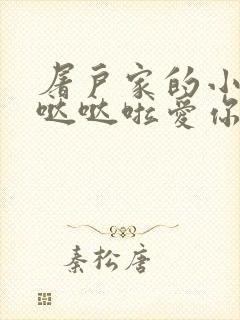 屠户家的小
哒哒啦爱你
秦松唐